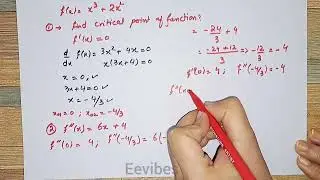 f(x) = x³ + 2x²
① → find critical point of function?
f'(x) = 0
d/dx f(x) = 3x² + 4x = 0
x(3x+4) = 0
x = 0, ✓
3x+4 = 0 ✓
x = -4/3 ✓
x₀₁ = 0, x₀₂ = -4/3
② f''(x) = 6x + 4
f''(0) = 4 ; f''(-4/3) = 6(-
= -24/3 + 4
= (-24+12)/3 ⇒ -12/3 = -4
f''(0) = 4 ; f''(-4/3) = -4
f''(x
Eevibes